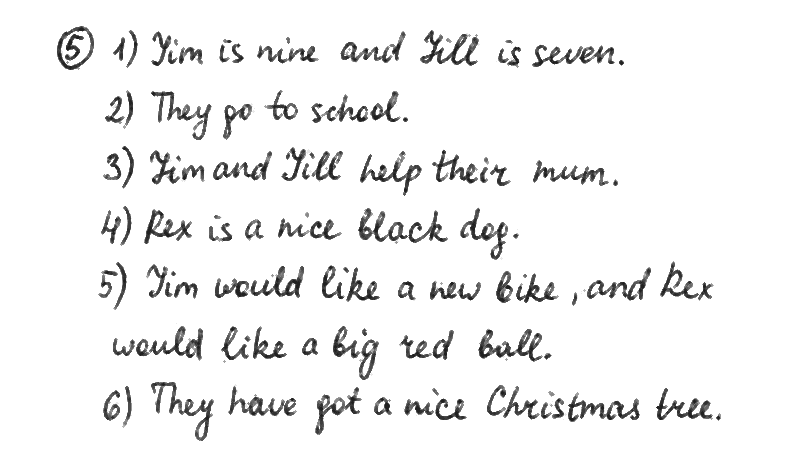 ⑤ 1) Jim is nine and Jill is seven.
2) They go to school.
3) Jim and Jill help their mum.
4) Rex is a nice black dog.
5) Jim would like a new bike, and Rex
would like a big red ball.
6) They have got a nice Christmas tree.